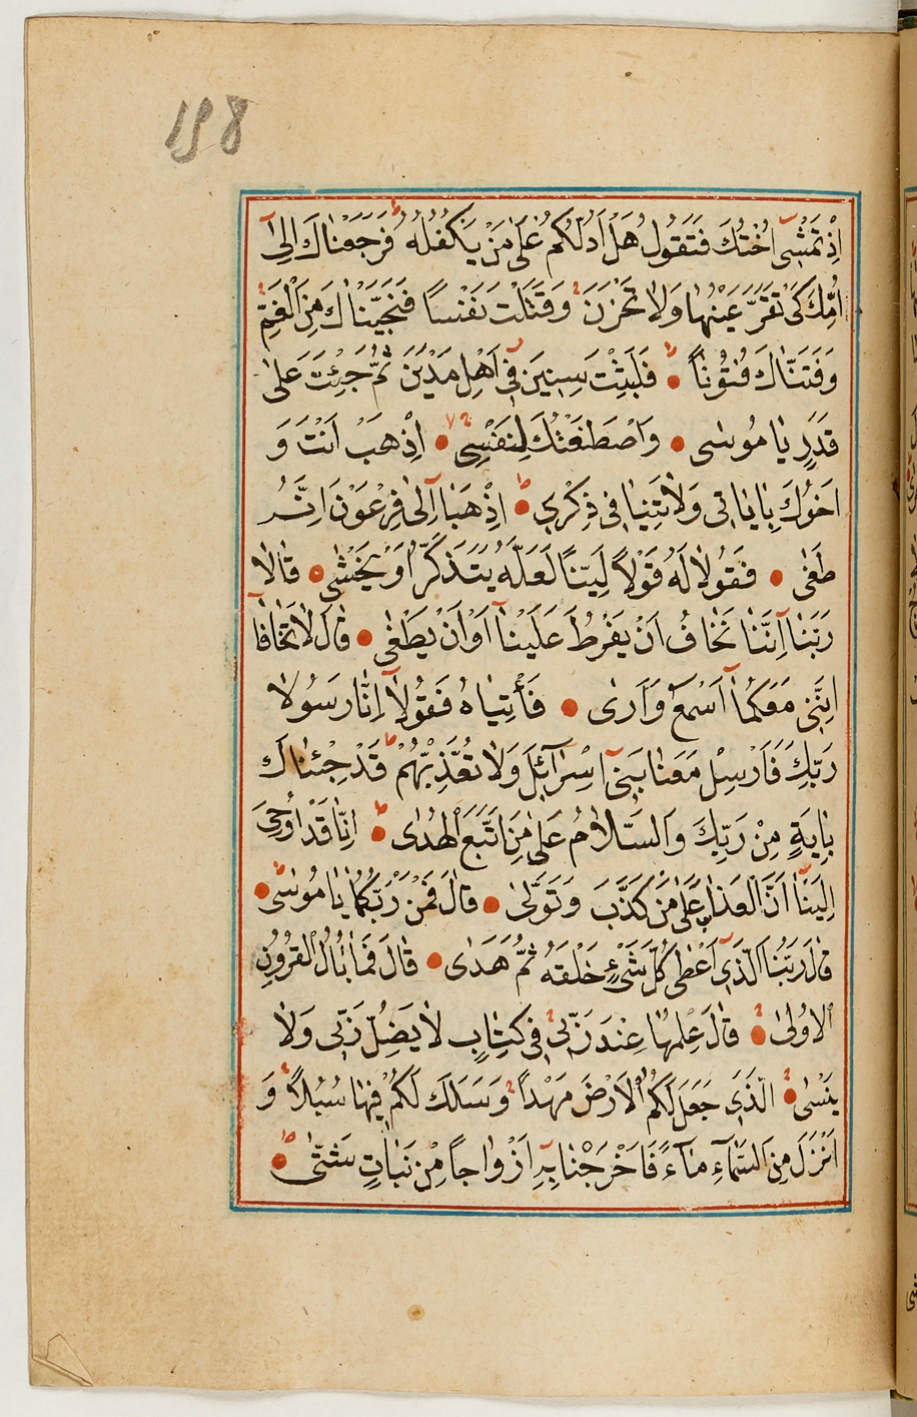 198
اِذْ تَمْشٖٓى اُخْتُكَ فَتَقُولُ هَلْ اَدُلُّكُمْ عَلٰى مَنْ يَكْفُلُهُ ط فَرَجَعْنَاكَ اِلٰٓى
اُمِّكَ كَىْ تَقَرَّ عَيْنُهَا وَلَا تَحْزَنَ وَقَتَلْتَ نَفْسًا فَنَجَّيْنَاكَ مِنَ الْغَمِّ
وَفَتَنَّاكَ فُتُونًا ط فَلَبِثْتَ سِنٖينَ فٖٓى اَهْلِ مَدْيَنَ ثُمَّ جِئْتَ عَلٰى
قَدَرٍ يَا مُوسٰى وَاصْطَنَعْتُكَ لِنَفْسٖى اِذْهَبْ اَنْتَ وَ
اَخُوكَ بِاٰيَاتٖى وَلَا تَنِيَا فٖى ذِكْرٖى ط اِذْهَبَٓا اِلٰى فِرْعَوْنَ اِنَّهُ
طَغٰى فَقُولَا لَهُ قَوْلًا لَيِّنًا لَعَلَّهُ يَتَذَكَّرُ اَوْ يَخْشٰى قَالَا
رَبَّنَٓا اِنَّنَا نَخَافُ اَنْ يَفْرُطَ عَلَيْنَٓا اَوْ اَنْ يَطْغٰى قَالَ لَا تَخَافَٓا
اِنَّنٖى مَعَكُمَٓا اَسْمَعُ وَاَرٰى فَأْتِيَاهُ فَقُولَٓا اِنَّا رَسُولَا
رَبِّكَ فَاَرْسِلْ مَعَنَا بَنٖٓى اِسْرَٓائٖلَ وَلَا تُعَذِّبْهُمْ ط قَدْ جِئْنَاكَ
بِاٰيَةٍ مِنْ رَبِّكَ وَالسَّلَامُ عَلٰى مَنِ اتَّبَعَ الْهُدٰى ط اِنَّا قَدْ اُوحِىَ
اِلَيْنَٓا اَنَّ الْعَذَابَ عَلٰى مَنْ كَذَّبَ وَتَوَلّٰى قَالَ فَمَنْ رَبُّكُمَا يَا مُوسٰى ط
قَالَ رَبُّنَا الَّذٖٓى اَعْطٰى كُلَّ شَىْءٍ خَلْقَهُ ثُمَّ هَدٰى قَالَ فَمَا بَالُ الْقُرُونِ
الْاُولٰى قَالَ عِلْمُهَا عِنْدَ رَبّٖى فٖى كِتَابٍ لَا يَضِلُّ رَبّٖى وَلَا
يَنْسٰى الَّذٖى جَعَلَ لَكُمُ الْاَرْضَ مَهْدًا وَسَلَكَ لَكُمْ فٖيهَا سُبُلًا وَ
اَنْزَلَ مِنَ السَّمَٓاءِ مَٓاءً فَاَخْرَجْنَا بِهٖٓ اَزْوَاجًا مِنْ نَبَاتٍ شَتّٰى ط